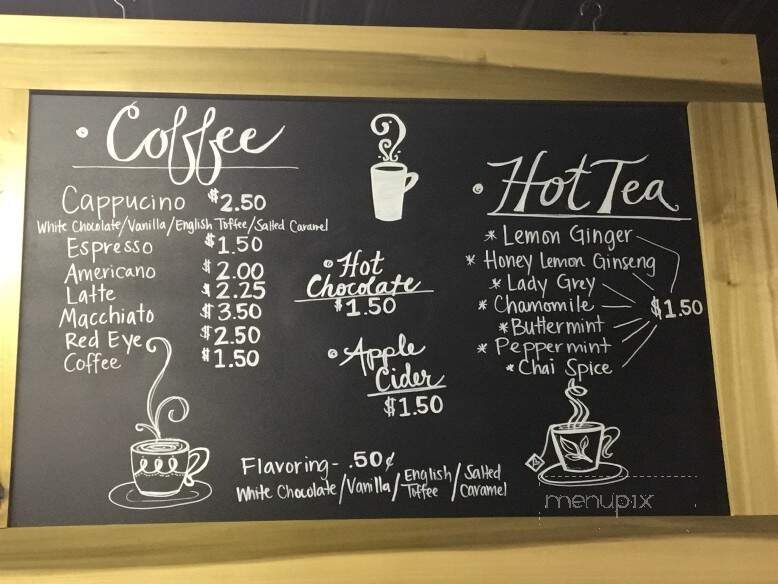 • Coffee
Cappucino $2.50
White Chocolate/Vanilla/English Toffee/Salted Caramel
Espresso $1.50
Americano $2.00
Latte $2.25
Macchiato $3.50
Red Eye $2.50
Coffee $1.50
• Hot
Chocolate
$1.50
• Apple
Cider
$1.50
• Hot Tea
* Lemon Ginger
* Honey Lemon Ginseng
* Lady Grey
* Chamomile
$1.50
* Buttermint
* Peppermint
* Chai Spice
Flavoring - .50¢
White Chocolate/Vanilla/English Toffee/Salted Caramel
menupix